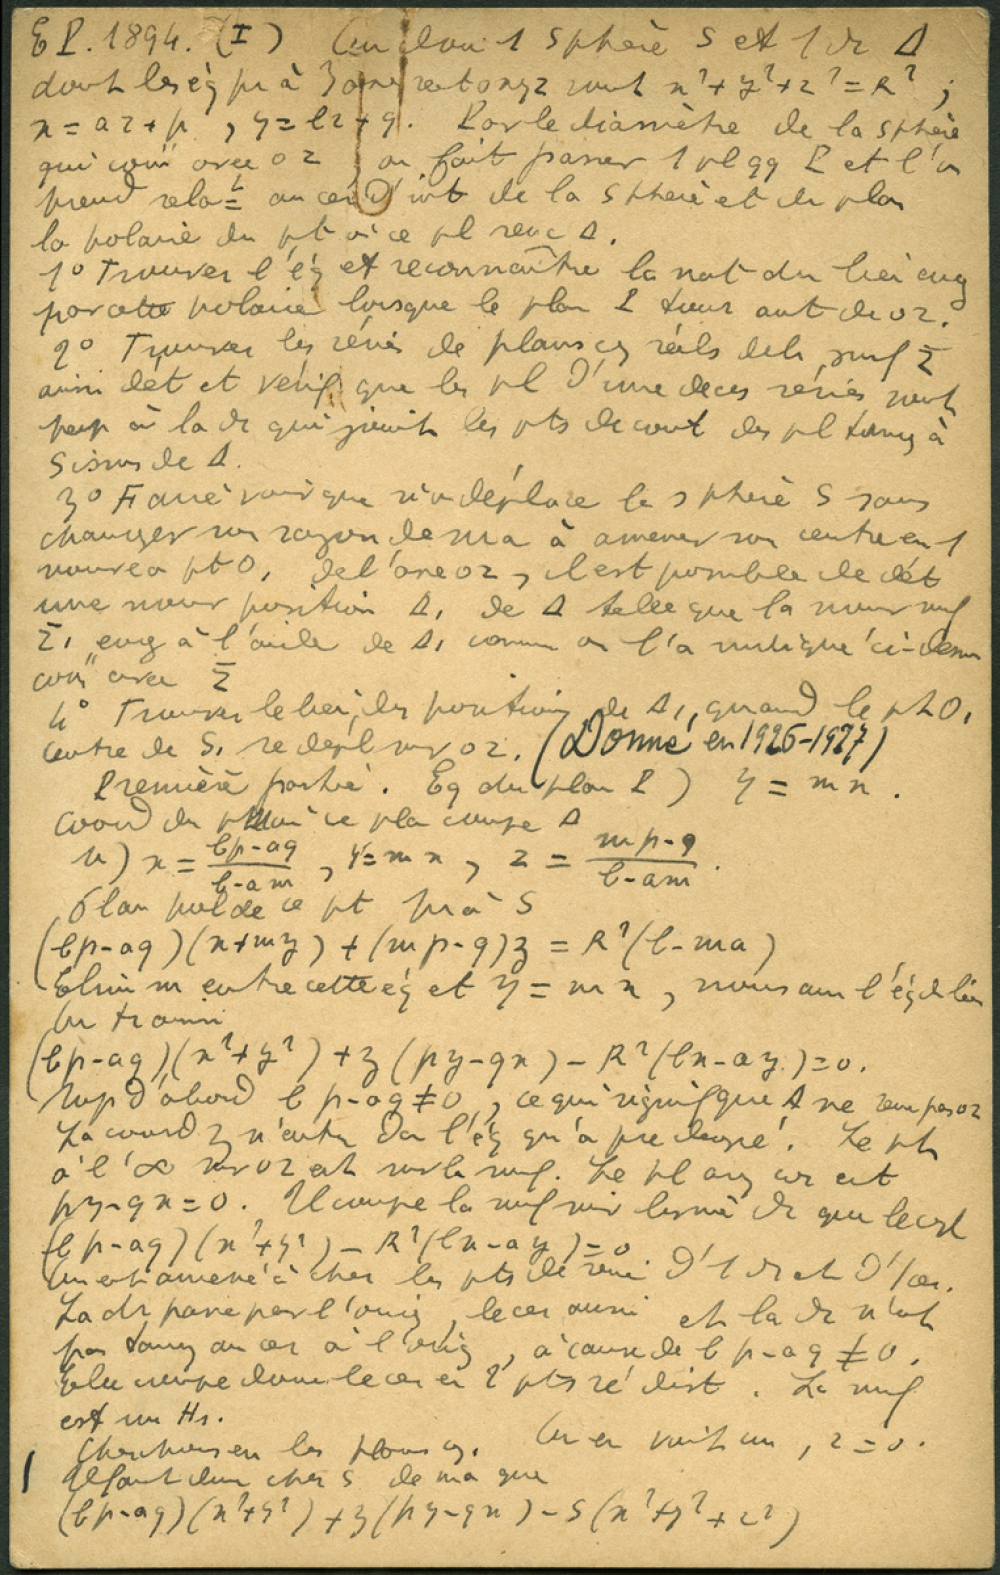 E P. 1894. (I) On don 1 sphère S et 1 dr Δ
dont les éq pr à 3 axes rect oxyz sont x²+y²+z²=R² ;
x = az+p , y = bz+q. Par le diamètre de la sphère
qui coïn avec oz on fait passer 1 pl qq P et l'on
prend rela au cer d'int de la sphère et du plan
la polaire du pt où ce pl renc Δ.
1° Trouver l'éq et reconnaître la nat du lieu eng
par cette polaire lorsque le plan P tour aut de oz.
2° Trouver les séries de plans cy réels de la surf Σ
ainsi dét et vérif que les pl d'une de ces séries sont
perp à la dr qui joint les pts de cont des pl tang à
S issus de Δ.
3° Faire voir que si on déplace la sphère S sans
changer son rayon de ma à amener son centre en 1
nouveau pt O₁ de l'axe oz, il est possible de dét
une nouv position Δ₁ de Δ telle que la nouv surf
Σ₁ eng à l'aide de Δ₁ comme on l'a indiqué ci-dessus
coïn avec Σ
4° Trouver le lieu des positions de Δ₁, quand le pt O₁
centre de S₁ se dépl sur oz. (Donné en 1926-1927)
Première partie. Eq du plan P) y = mx.
Coord du pt où ce plan coupe Δ
u) x = (bp-aq)/(b-am) , y=mx , z = (mp-q)/(b-am).
Plan pol de ce pt pr à S
(bp-aq)(x+my) + (mp-q)z = R²(b-ma)
Elim m entre cette éq et y = mx, nous aur l'éq du lieu
On trouve
(bp-aq)(x²+y²) + z(py-qx) - R²(bx-ay) = 0.
Sup d'abord bp-aq≠0, ce qui signif que Δ ne renc pas oz
La coord z n'entre dans l'éq qu'à pre degré. Le pt
à l'∞ sur oz est sur la surf. Le pl asy cor est
py-qx=0. Il coupe la surf suiv la même dr que le cyl
(bp-aq)(x²+y²) - R²(bx-ay)=0
On est amené à cher les pts de renc d'1 dr et d'1 cer.
La dr passe par l'orig, le cer aussi et la dr n'est
pas tang au cer à l'orig, à cause de bp-aq≠0.
Elle coupe donc le cer en 2 pts ré dist. La surf
est un H₁.
Cherchons en les plans cy. On en voit un, z=0.
Il faut donc cher S de ma que
(bp-aq)(x²+y²) + z(py-qx) - S(x²+y²+z²)